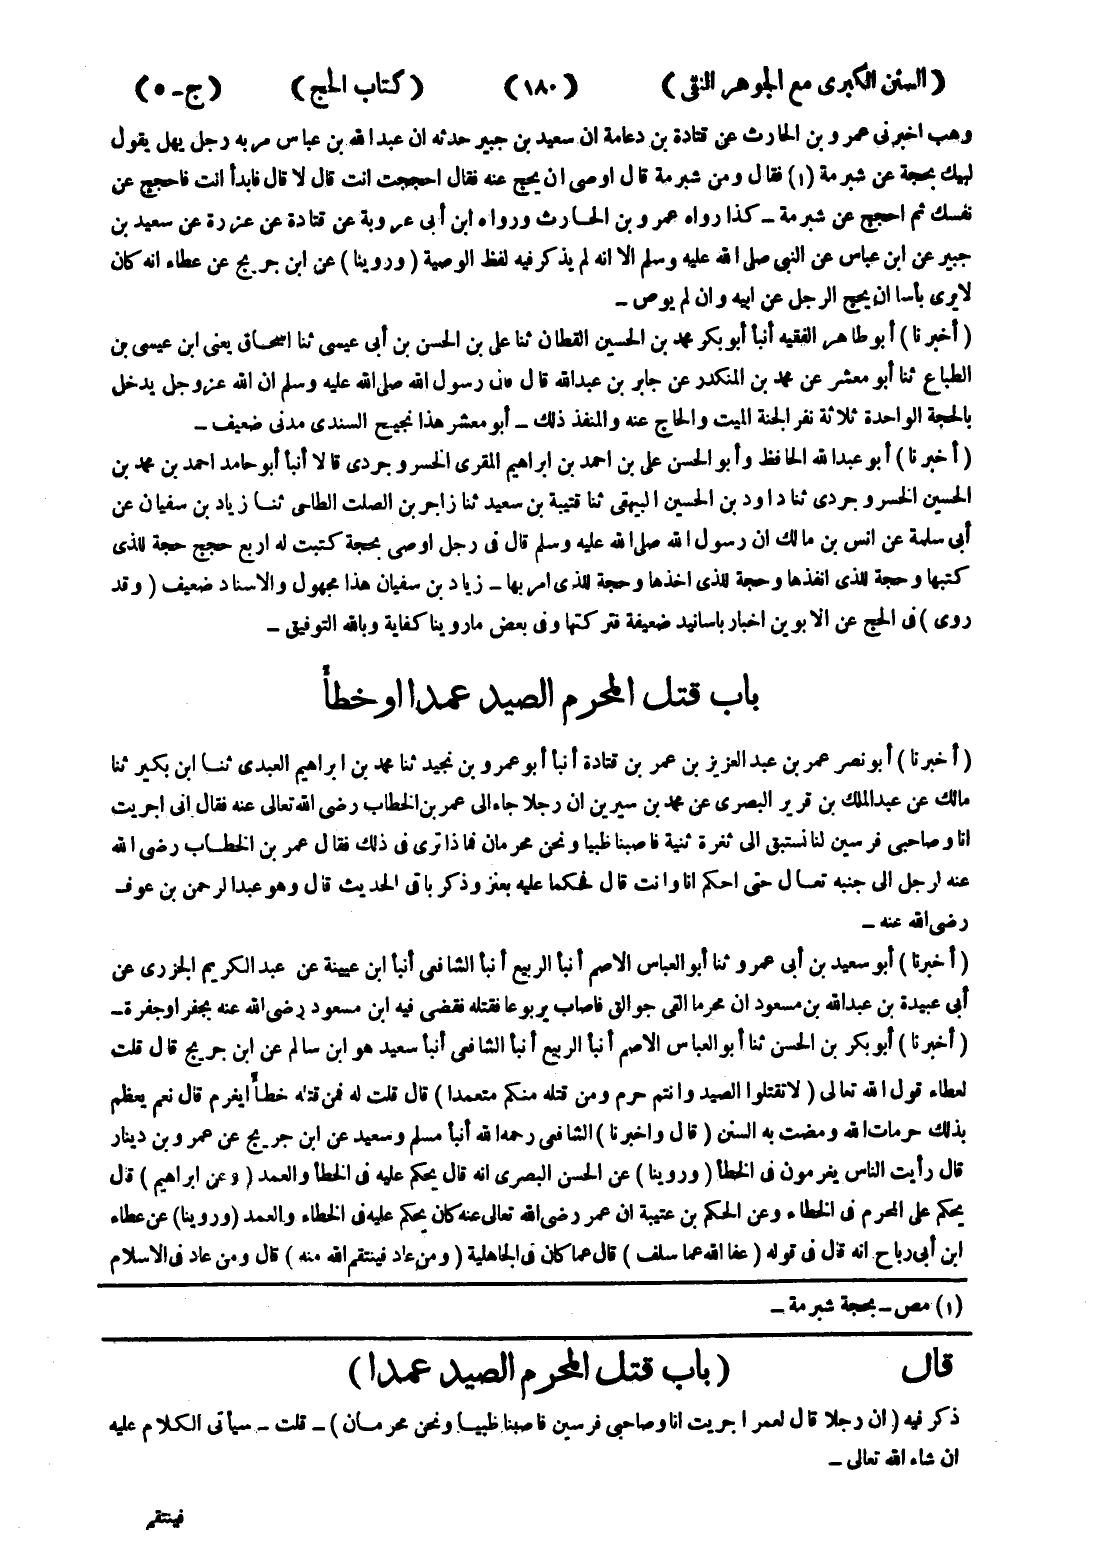 (السنن الكبرى مع الجوهر النقى) (١٨٠) (كتاب الحج) (ج-٥)
وهب اخبرنى عمرو بن الحارث عن قتادة بن دعامة ان سعيد بن جبير حدثه ان عبدالله بن عباس مر به رجل يهل يقول
لبيك بحجة عن شبرمة (١) فقال ومن شبرمة قال اوصى ان يحج عنه فقال احججت انت قال لا قال فابدأ انت فاحجج عن
نفسك ثم احجج عن شبرمة ـ كذا رواه عمرو بن الحارث ورواه ابن أبى عروبة عن قتادة عن عزرة عن سعيد بن
جبير عن ابن عباس عن النبى صلى الله عليه وسلم الا انه لم يذكر فيه لفظ الوصية (وروينا) عن ابن جريج عن عطاء انه كان
لا يرى بأسا ان يحج الرجل عن ابيه وان لم يوص ـ
(أخبرنا) أبو طاهر الفقيه أنبأ أبو بكر محمد بن الحسين القطان ثنا على بن الحسن بن أبى عيسى ثنا اسحاق يعنى ابن عيسى بن
الطباع ثنا أبو معشر عن محمد بن المنكدر عن جابر بن عبدالله قال قال رسول الله صلى الله عليه وسلم ان الله عزوجل يدخل
بالحجة الواحدة ثلاثة نفر الجنة الميت والحاج عنه والمنفذ ذلك ـ أبو معشر هذا نجيح السندى مدنى ضعيف ـ
(أخبرنا) أبو عبدالله الحافظ وأبو الحسن على بن احمد بن ابراهيم المقرى الخسروجردى قالا أنبأ أبو حامد احمد بن محمد بن
الحسين الخسروجردى ثنا داود بن الحسين البيهقى ثنا قتيبة بن سعيد ثنا زاجر بن الصلت الطاحى ثنا زياد بن سفيان عن
أبى سلمة عن انس بن مالك ان رسول الله صلى الله عليه وسلم قال فى رجل اوصى بحجة كتبت له اربع حجج حجة للذى
كتبها وحجة للذى انفذها وحجة للذى اخذها وحجة للذى امر بها ـ زياد بن سفيان هذا مجهول والاسناد ضعيف (وقد
روى) فى الحج عن الابوين اخبار باسانيد ضعيفة فتركتها وفى بعض ماروينا كفاية وبالله التوفيق ـ
باب قتل المحرم الصيد عمدا او خطأ
(أخبرنا) أبو نصر عمر بن عبد العزيز بن عمر بن قتادة أنبأ أبو عمرو بن نجيد ثنا محمد بن ابراهيم العبدى ثنا ابن بكير ثنا
مالك عن عبدالملك بن قرير البصرى عن محمد بن سيرين ان رجلا جاء الى عمر بن الخطاب رضى الله تعالى عنه فقال انى اجريت
انا وصاحبى فرسين لنا نستبق الى ثغرة ثنية فاصبنا ظبيا ونحن محرمان فماذا ترى فى ذلك فقال عمر بن الخطاب رضى الله
عنه لرجل الى جنبه تعال حتى احكم انا وانت قال فحكما عليه بعنز وذكر باقى الحديث قال وهو عبدالرحمن بن عوف
رضى الله عنه ـ
(أخبرنا) أبو سعيد بن أبى عمرو ثنا أبو العباس الاصم أنبأ الربيع أنبأ الشافعى أنبأ ابن عيينة عن عبد الكريم الجزرى عن
أبى عبيدة بن عبدالله بن مسعود ان محرما القى جوالق فاصاب يربوعا فقتله فقضى فيه ابن مسعود رضى الله عنه بجفر اوجفرة ـ
(أخبرنا) أبو بكر بن الحسن ثنا أبو العباس الاصم أنبأ الربيع أنبأ الشافعى أنبأ سعيد هو ابن سالم عن ابن جريج قال قلت
لعطاء قول الله تعالى (لا تقتلوا الصيد وانتم حرم ومن قتله منكم متعمدا) قال قلت له فمن قتله خطأ ايغرم قال نعم يعظم
بذلك حرمات الله ومضت به السنن (قال واخبرنا) الشافعى رحمه الله أنبأ مسلم وسعيد عن ابن جريج عن عمرو بن دينار
قال رأيت الناس يغرمون فى الخطأ (وروينا) عن الحسن البصرى انه قال يحكم عليه فى الخطأ والعمد (وعن ابراهيم) قال
يحكم على المحرم فى الخطاء وعن الحكم بن عتيبة ان عمر رضى الله تعالى عنه كان يحكم عليه فى الخطاء والعمد (وروينا) عن عطاء
ابن أبى رباح انه قال فى قوله (عفا الله عما سلف) قال عما كان فى الجاهلية (ومن عاد فينتقم الله منه) قال ومن عاد فى الاسلام
(١) مص ـ بحجة شبرمة ـ
قال (باب قتل المحرم الصيد عمدا)
ذكر فيه (ان رجلا قال لعمر اجريت انا وصاحبى فرسين فاصبنا ظبيا ونحن محرمان) ـ قلت ـ سيأتى الكلام عليه
ان شاء الله تعالى ـ
فينتقم